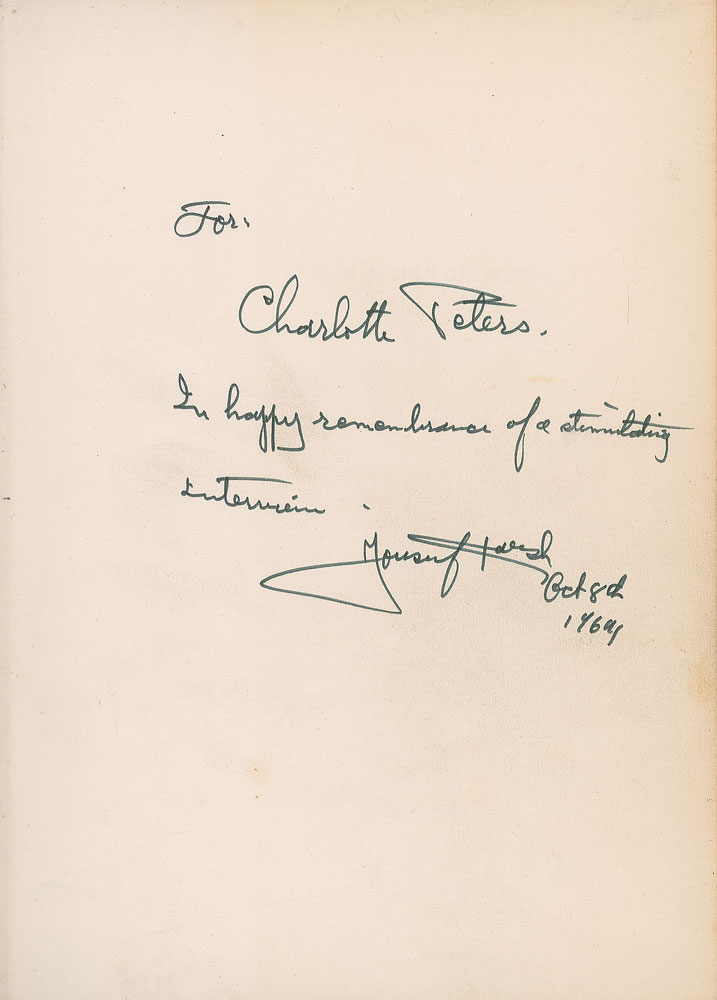 For:
Charlotte Peters.
In happy remembrance of a stimulating
interview.
Yousuf Karsh
Oct 8th
1969